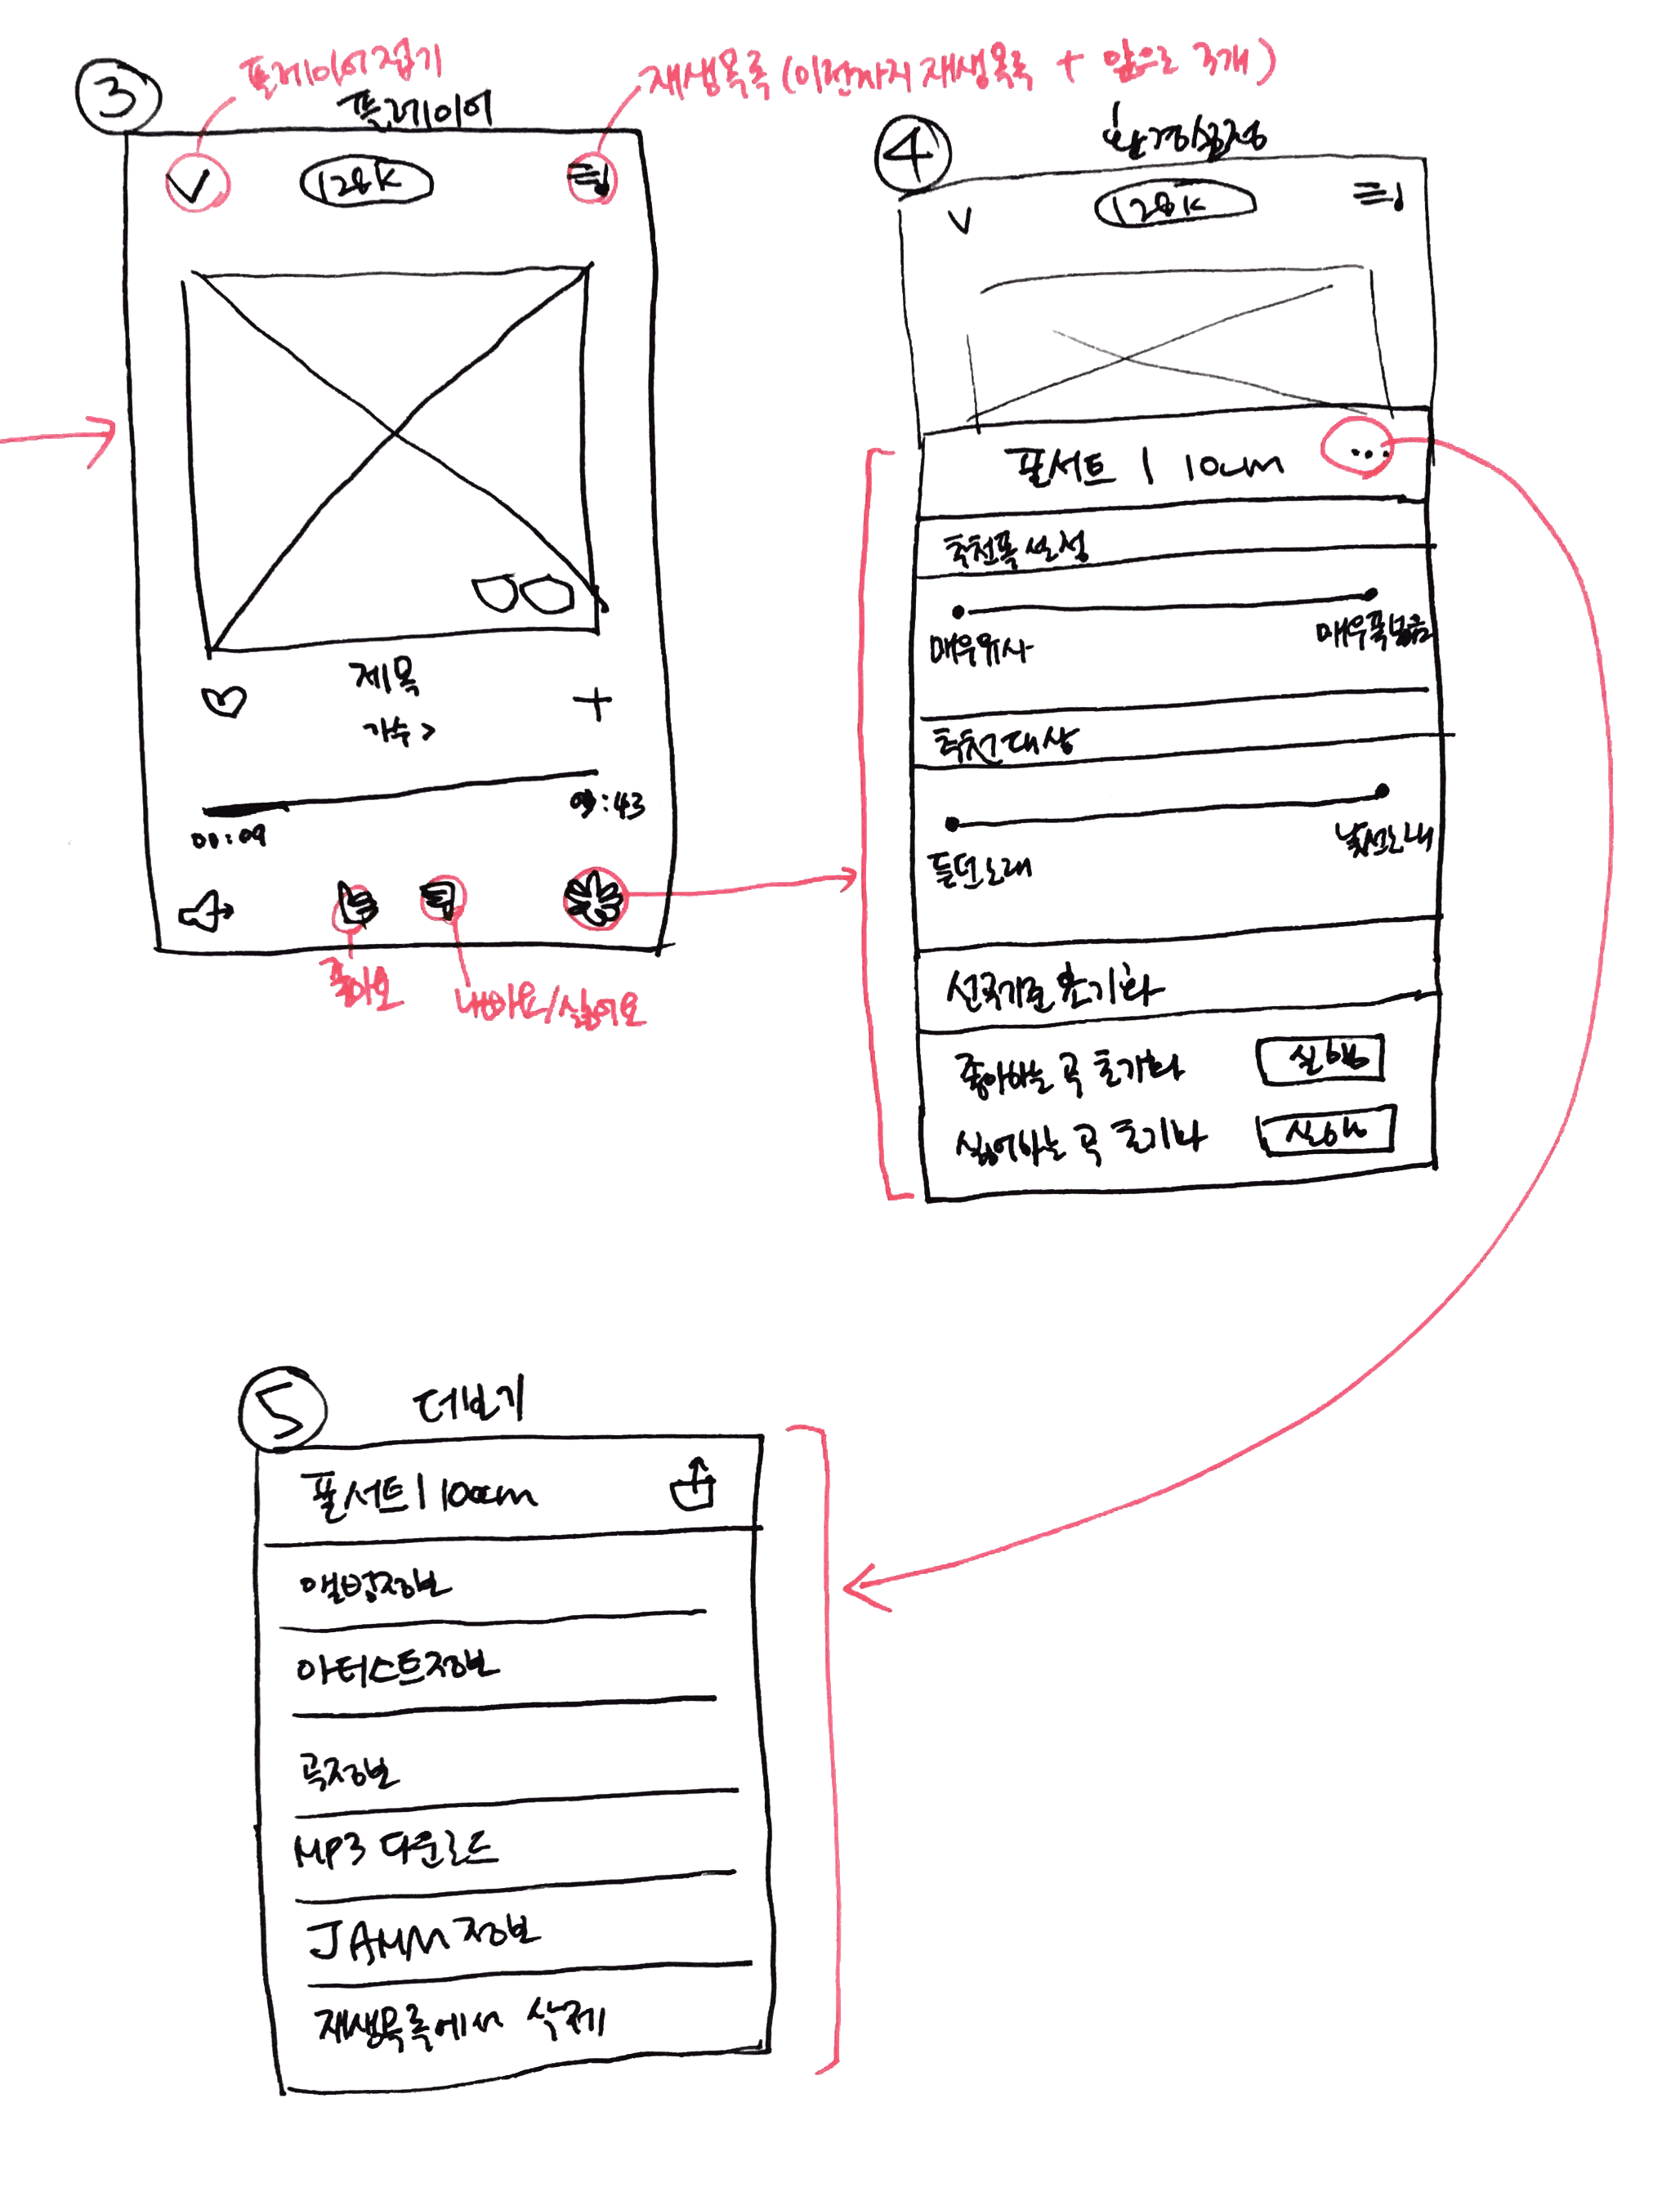 ③
플레이어접기
플레이어
재생목록 (이전까지 재생목록 + 앞으로 3개)
128K
제목
가수 >
00:09
03:43
좋아요
나빠요/싫어요
④
환경설정
128K
폴서트 | 10cm
...
추천폭 설정
매우유사
매우폭넓음
추천대상
듣던노래
낯선노래
선곡기준 초기화
좋아하는 곡 초기화
실행
싫어하는 곡 초기화
실행
⑤
더보기
폴서트 | 10cm
앨범정보
아티스트정보
곡정보
MP3 다운로드
JAMM 정보
재생목록에서 삭제